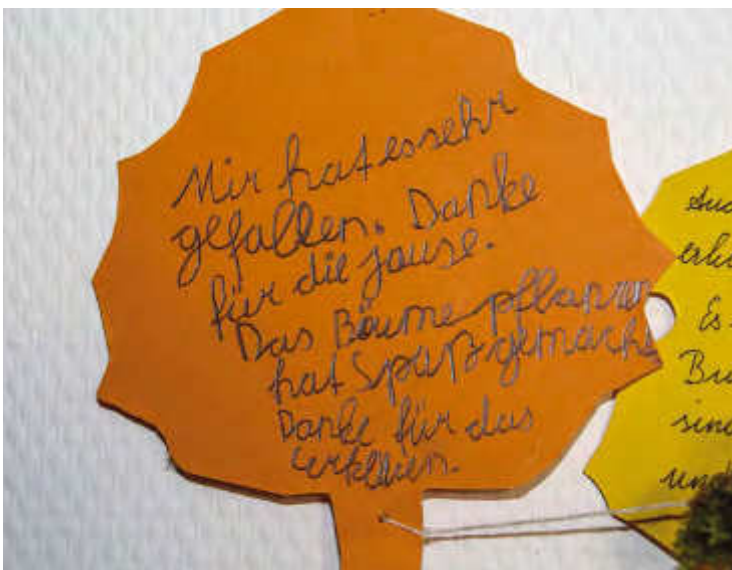 Mir hat es sehr
gefallen. Danke
für die Jause.
Das Bäume pflanzen
hat Spaß gemacht
Danke für das
Erklären.
Es
sind
und